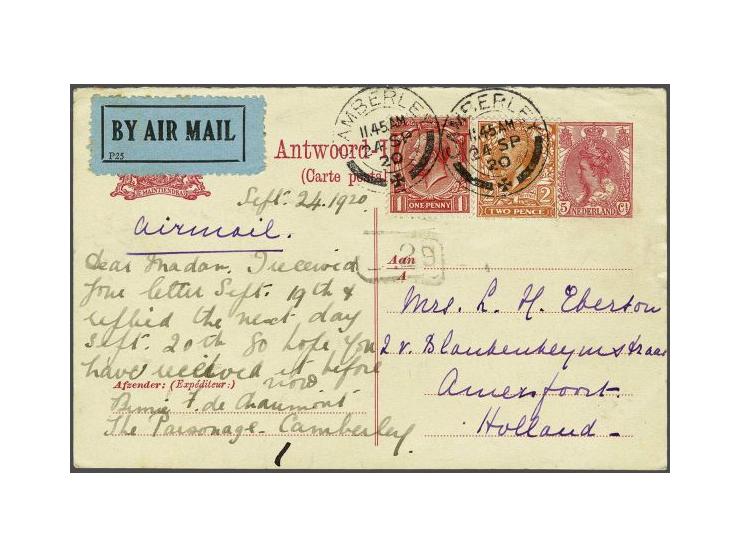 BY AIR MAIL
P25
JE MAINTIENDRAI
Antwoord-
(Carte posta
CAMBERLEY
11.45 AM
24 SP
20
CAMBERLEY
11.45 AM
24 SP
20
1 ONE·PENNY 1
2
TWO PENCE
5 NEDERLAND Ct
Sept. 24. 1920
airmail.
Dear Madam, I received
your letter Sept. 19th &
replied the next day
Sept. 20th So hope you
have received it before
now
Afzender: (Expéditeur:)
F. de Chaumont
The Parsonage - Camberley
29
Aan
A
Mrs. L. H. Eberson
2 v. Blankenheymstraat
Amersfoort.
Holland -